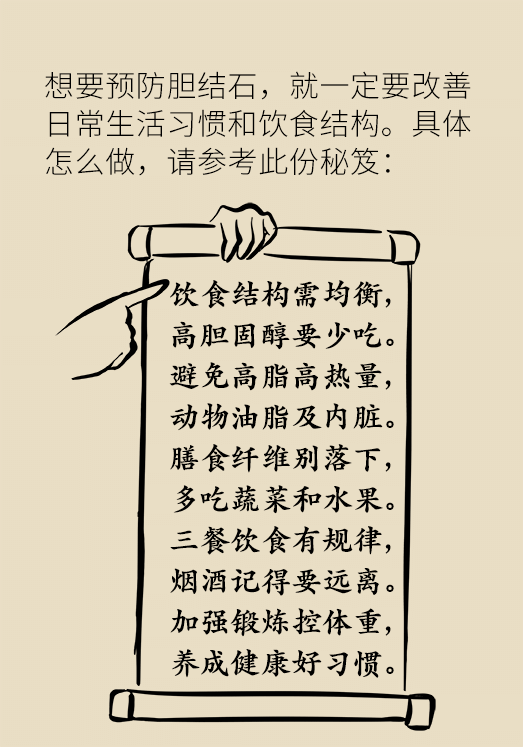 想要预防胆结石，就一定要改善
日常生活习惯和饮食结构。具体
怎么做，请参考此份秘笈：
饮食结构需均衡，
高胆固醇要少吃。
避免高脂高热量，
动物油脂及内脏。
膳食纤维别落下，
多吃蔬菜和水果。
三餐饮食有规律，
烟酒记得要远离。
加强锻炼控体重，
养成健康好习惯。